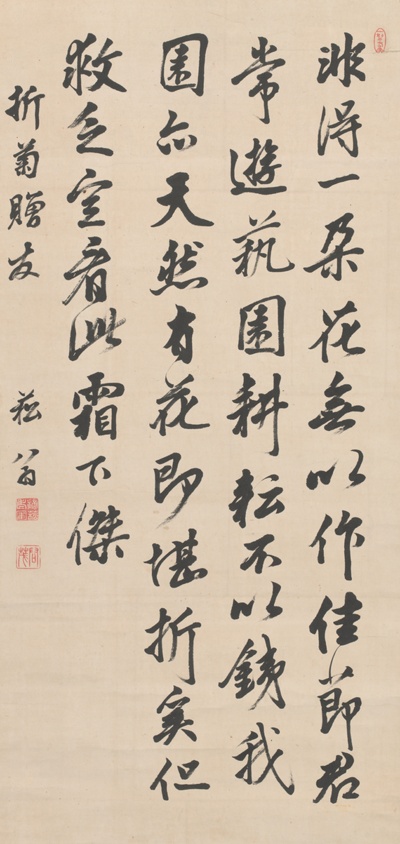 非得一朶花無以作佳節君
常遊蓺園耕耘不以銕我
園亦天然有花即堪折奚但
救乏空看此霜下傑
折菊贈友
菘翁